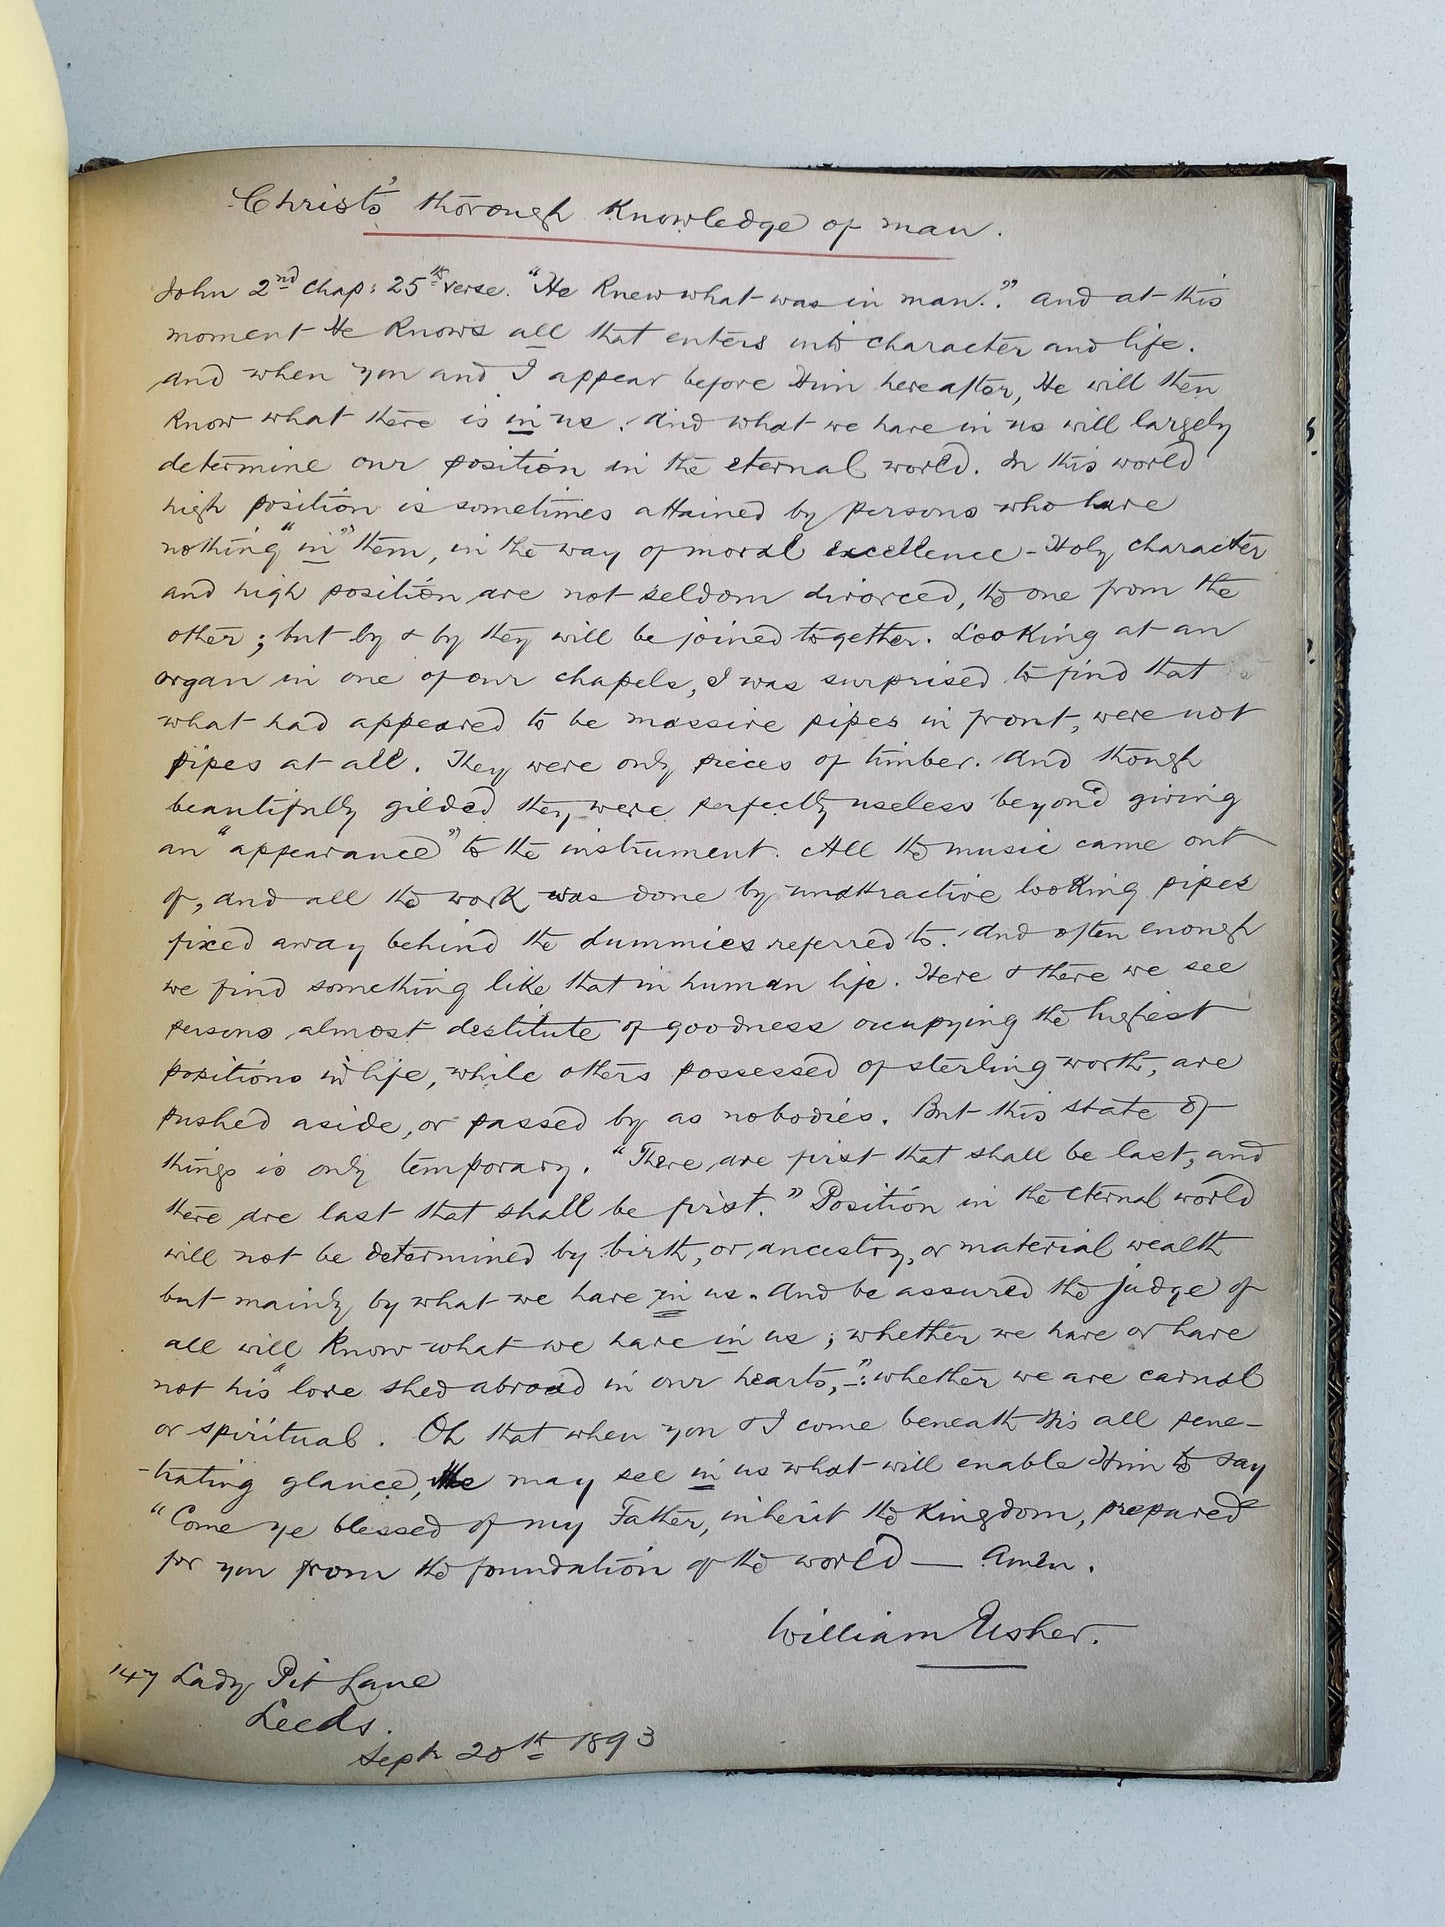 Christ's thorough Knowledge of man.
John 2nd Chap: 25th verse. "He Knew what was in man." And at this
moment He Knows all that enters into character and life.
And when you and I appear before Him hereafter, He will then
Know what there is in us. And what we have in us will largely
determine our position in the eternal world. In this world
high position is sometimes attained by persons who have
nothing "in" them, in the way of moral excellence - Holy character
and high position are not seldom divorced, the one from the
other; but by & by they will be joined together. Looking at an
organ in one of our chapels, I was surprised to find that
what had appeared to be massive pipes in front, were not
pipes at all. They were only pieces of timber. And though
beautifully gilded they were perfectly useless beyond giving
an "appearance" to the instrument. All the music came out
of, and all the work was done by unattractive looking pipes
fixed away behind the dummies referred to. And often enough
we find something like that in human life. Here & there we see
persons almost destitute of goodness occupying the highest
positions in life, while others possessed of sterling worth, are
pushed aside, or passed by as nobodies. But this state of
things is only temporary. "There are first that shall be last, and
there are last that shall be first." Position in the eternal world
will not be determined by birth, or ancestry, or material wealth
but mainly by what we have in us. And be assured the judge of
all will Know what we have in us; whether we have or have
not his "love shed abroad in our hearts,"-: whether we are carnal
or spiritual. Oh that when you & I come beneath His all pene-
-trating glance, He may see in us what will enable Him to say
"Come ye blessed of my Father, inherit the Kingdom, prepared
for you from the foundation of the world — Amen.
William Usher.
147 Lady Pit Lane
Leeds.
Sept 20th 1893